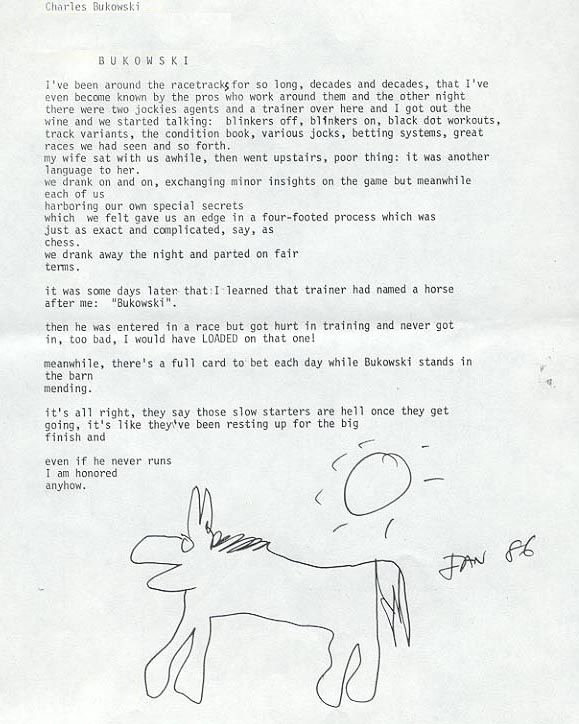 Charles Bukowski
B U K O W S K I
I've been around the racetracks for so long, decades and decades, that I've
even become known by the pros who work around them and the other night
there were two jockies agents and a trainer over here and I got out the
wine and we started talking:  blinkers off, blinkers on, black dot workouts,
track variants, the condition book, various jocks, betting systems, great
races we had seen and so forth.
my wife sat with us awhile, then went upstairs, poor thing: it was another
language to her.
we drank on and on, exchanging minor insights on the game but meanwhile
each of us
harboring our own special secrets
which  we felt gave us an edge in a four-footed process which was
just as exact and complicated, say, as
chess.
we drank away the night and parted on fair
terms.
it was some days later that I learned that trainer had named a horse
after me:  "Bukowski".
then he was entered in a race but got hurt in training and never got
in, too bad, I would have LOADED on that one!
meanwhile, there's a full card to bet each day while Bukowski stands in
the barn
mending.
it's all right, they say those slow starters are hell once they get
going, it's like they've been resting up for the big
finish and
even if he never runs
I am honored
anyhow.
JAN 86